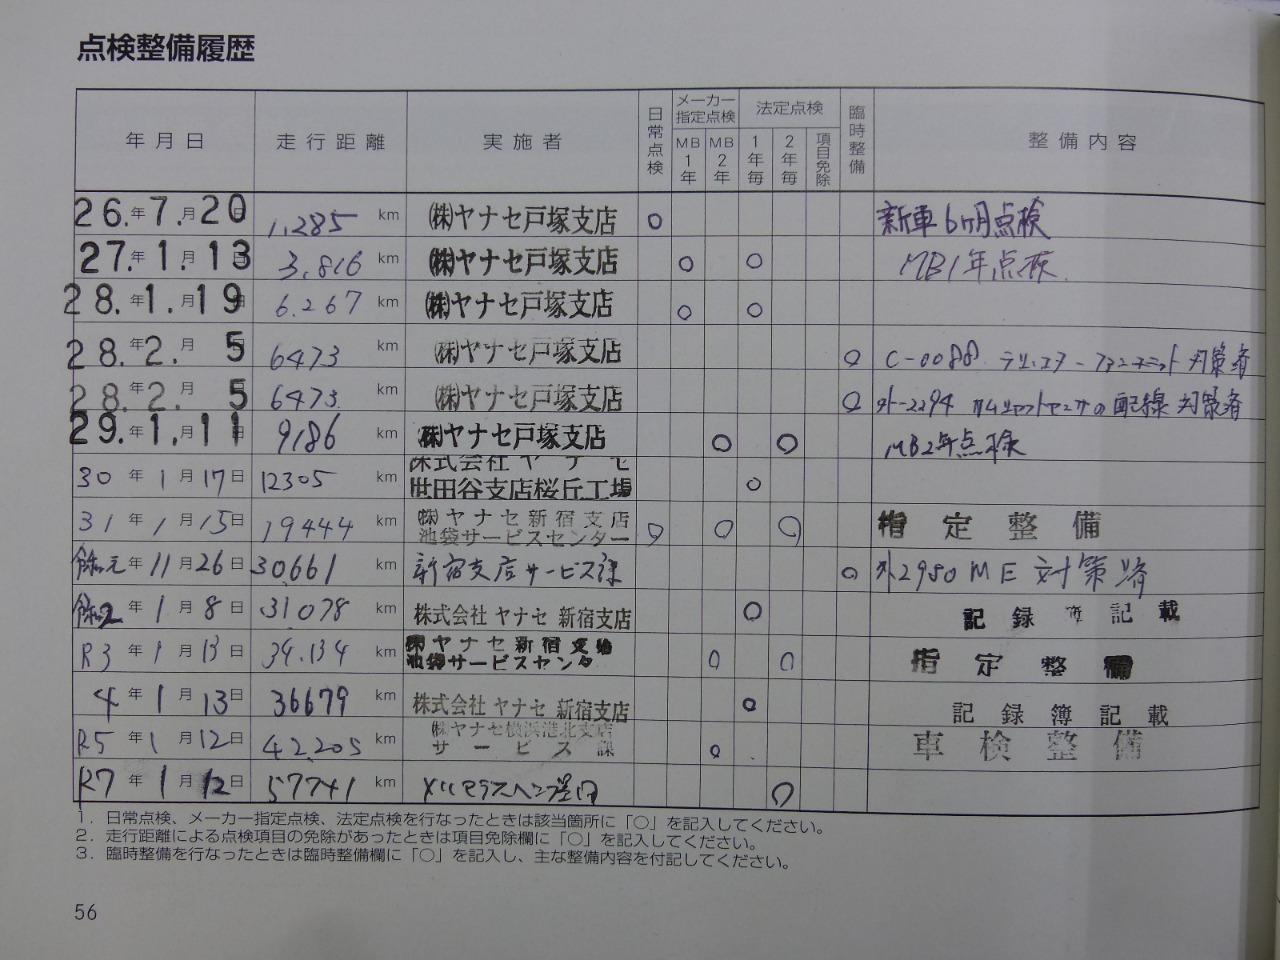 点検整備履歴
年月日 走行距離 実施者 日常点検 メーカー指定点検 MB1年 MB2年 法定点検 1年毎 2年毎 項目免除 臨時整備 整備内容
26.年7.月20日 1,285 km ㈱ヤナセ戸塚支店 ○ 新車6ヶ月点検
27.年1.月13日 3,816 km ㈱ヤナセ戸塚支店 ○ ○ MB1年点検
28.年1.月19日 6.267 km ㈱ヤナセ戸塚支店 ○ ○
28.年2.月5日 6473 km ㈱ヤナセ戸塚支店 ○ C-0088 対策済
28.年2.月5日 6473 km ㈱ヤナセ戸塚支店 ○ 外-2294 カムシャフトセンサの配線対策済
29.年1.月11日 9186 km ㈱ヤナセ戸塚支店 ○ ○ MB2年点検
30年1月17日 12305 km 株式会社ヤナセ
世田谷支店桜丘工場 ○
31年1月15日 19444 km ㈱ヤナセ新宿支店
池袋サービスセンター ○ ○ ○ 指定整備
令和元年11月26日 30,661 km 新宿支店サービス課 ○ 外2980 ME 対策済
令和2年1月8日 31078 km 株式会社ヤナセ 新宿支店 ○ 記録簿記載
R3年1月13日 34.134 km ㈱ヤナセ新宿支店
池袋サービスセンター ○ ○ 指定整備
4年1月13日 36679 km 株式会社ヤナセ 新宿支店 ○ 記録簿記載
R5年1月12日 42.205 km ㈱ヤナセ横浜港北支店
サービス課 ○ 車検整備
R7年1月12日 57741 km ○
1．日常点検、メーカー指定点検、法定点検を行なったときは該当箇所に「○」を記入してください。
2．走行距離による点検項目の免除があったときは項目免除欄に「○」を記入してください。
3．臨時整備を行なったときは臨時整備欄に「○」を記入し、主な整備内容を付記してください。
56